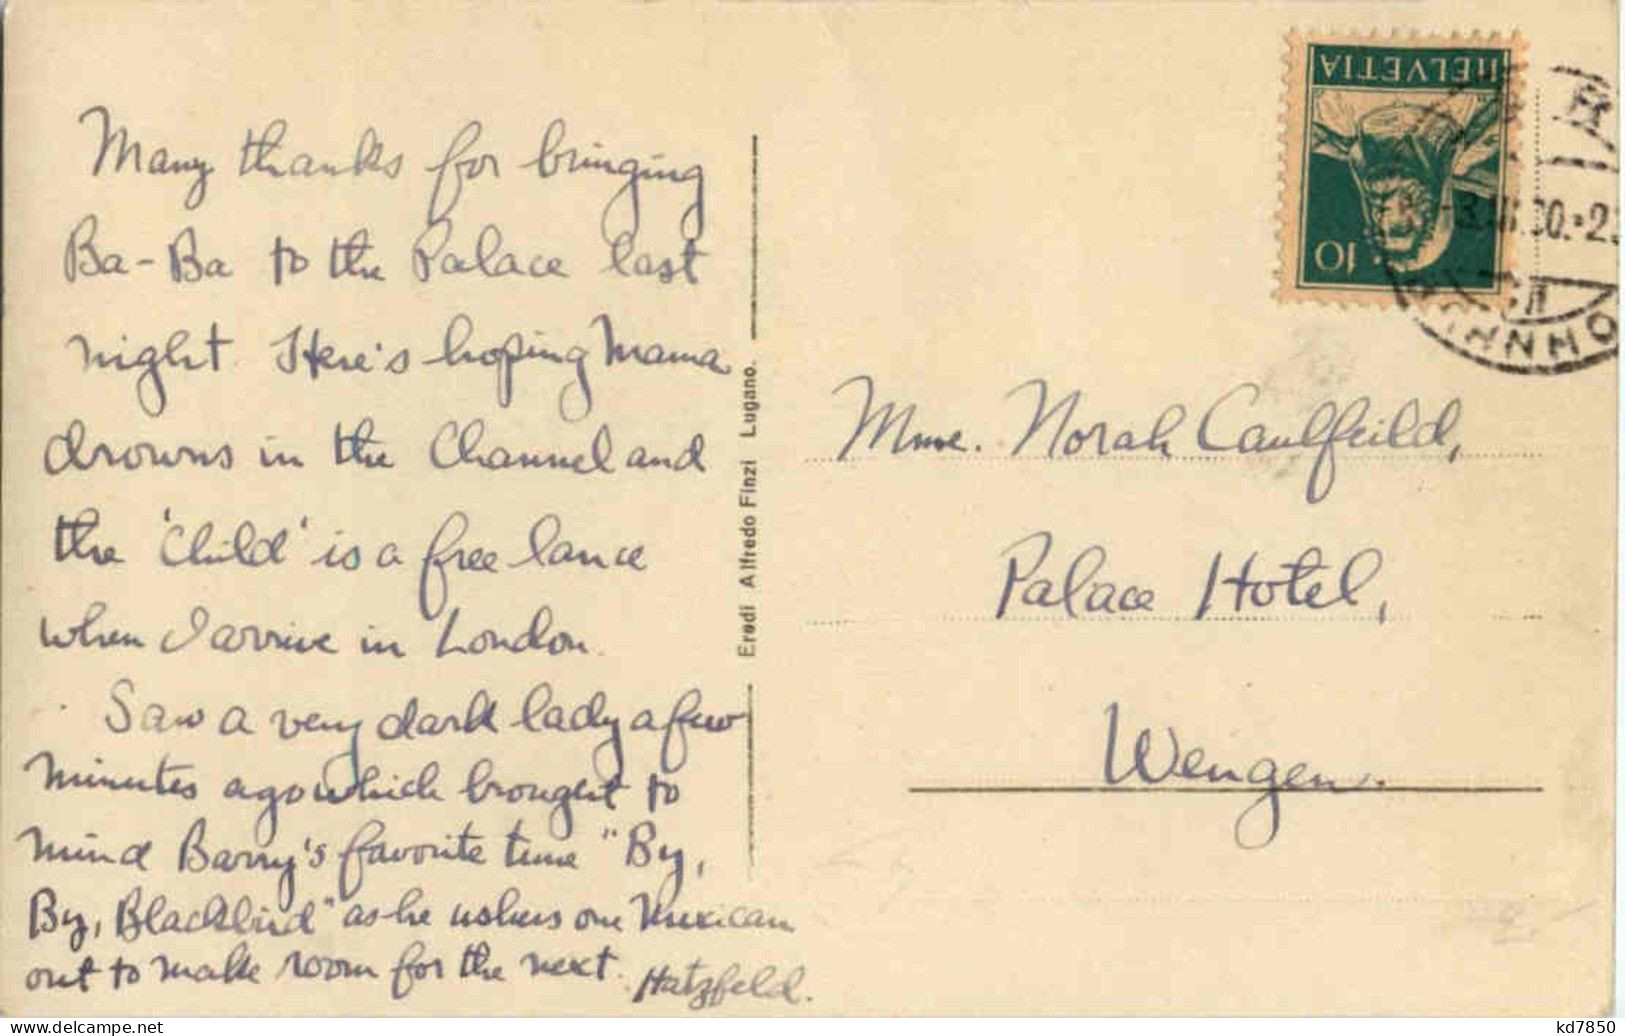 Many thanks for bringing
Ba-Ba to the Palace last
night. Here's hoping Mama
drowns in the Channel and
the 'Child' is a free lance
when I arrive in London.
Saw a very dark lady a few
minutes ago which brought to
mind Barry's favorite tune "By,
By, Blackbird" as he ushers one Mexican
out to make room for the next.
Hatzfeld.
Eredi Alfredo Finzi Lugano.
HELVETIA
10
Mme. Norah Caulfeild,
Palace Hotel,
Wengen.
kd7850